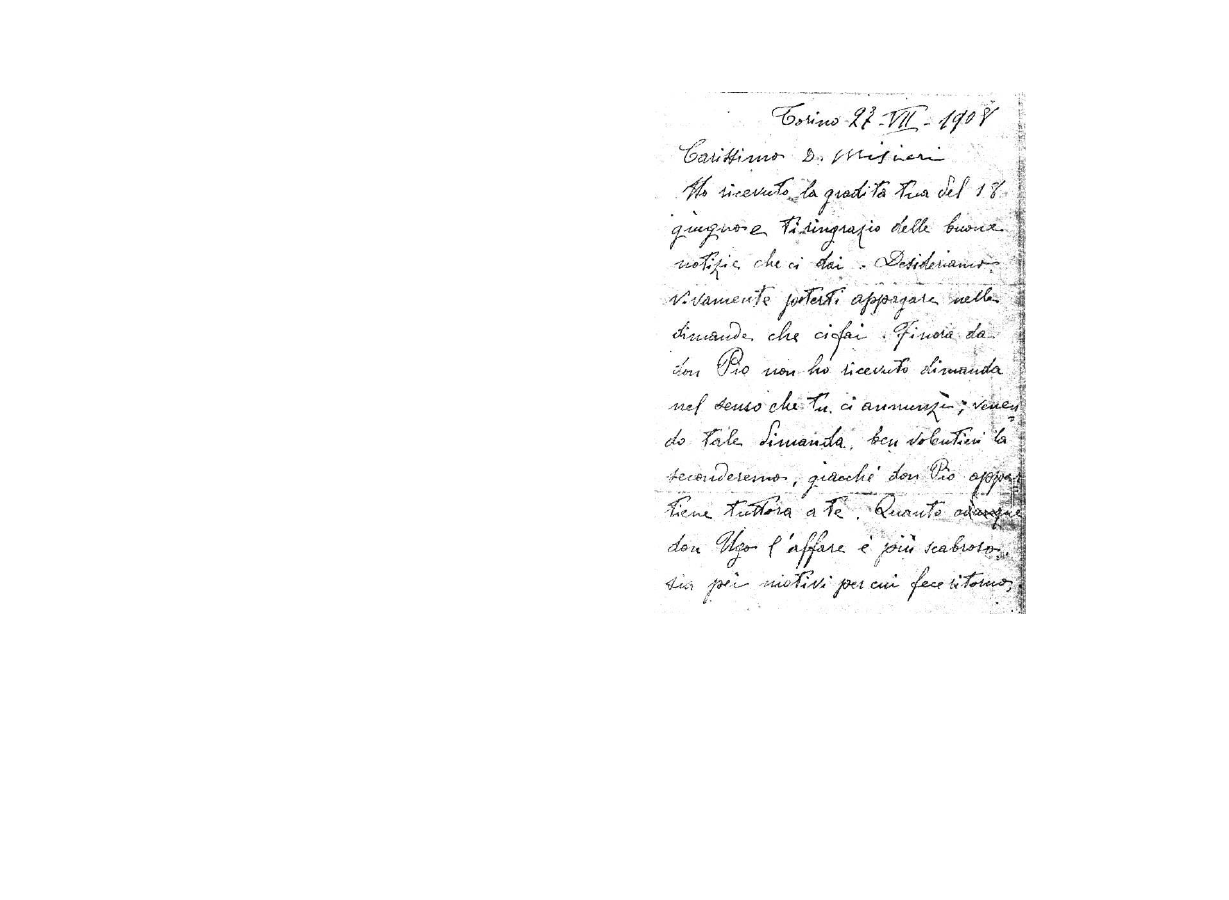 Torino 27-VII-1908
Carissimo D. Misieri
Ho ricevuto la gradita tua del 18
giugno e ti ringrazio delle buone
notizie che ci dai. Desideriamo
vivamente poterti appagare nelle
dimande che ci fai. Finora da
don Pio non ho ricevuto dimanda
nel senso che tu ci annunzi; venen
do tale dimanda, ben volentieri la
seconderemo, giacché don Pio appar
tiene tuttora a te. Quanto
don Ugo l'affare è più scabroso
sia pei motivi per cui fece ritorno,